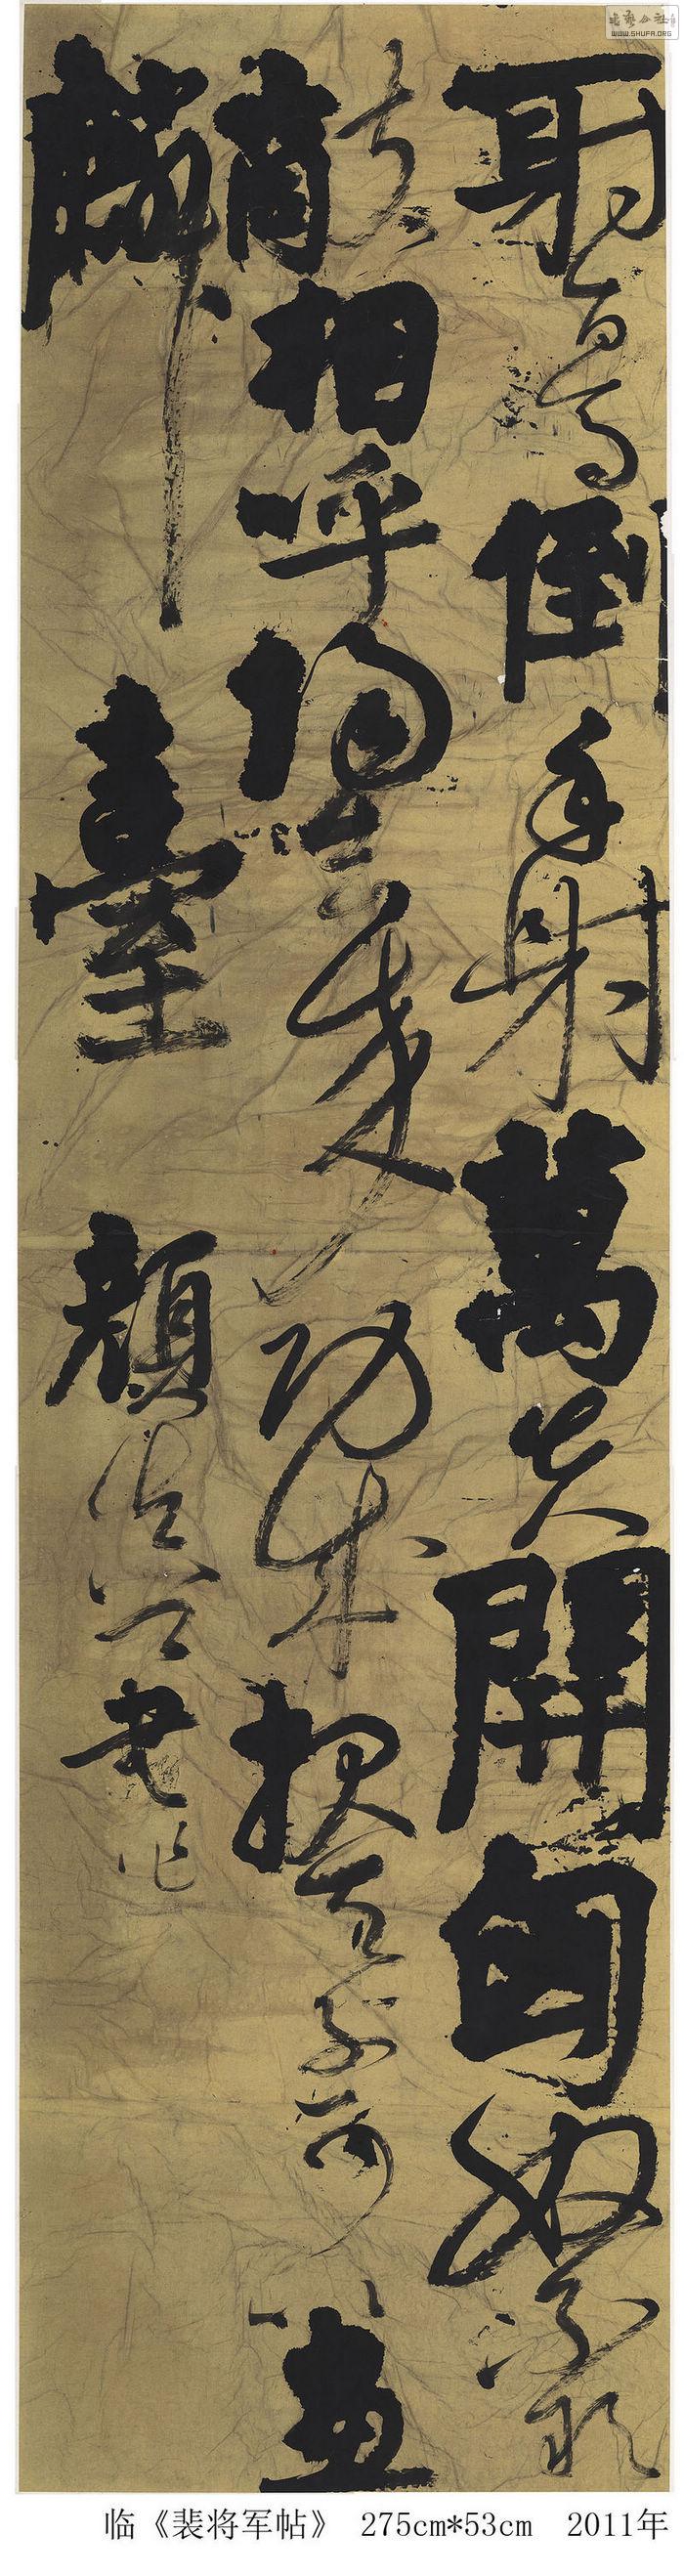 射百馬倒再射萬夫開匈奴不敢
敵相呼歸去來功成報天子可以畫
麟臺
顏真卿書
WWW.SHUFA.ORG
临《裴将军帖》 275cm*53cm 2011年